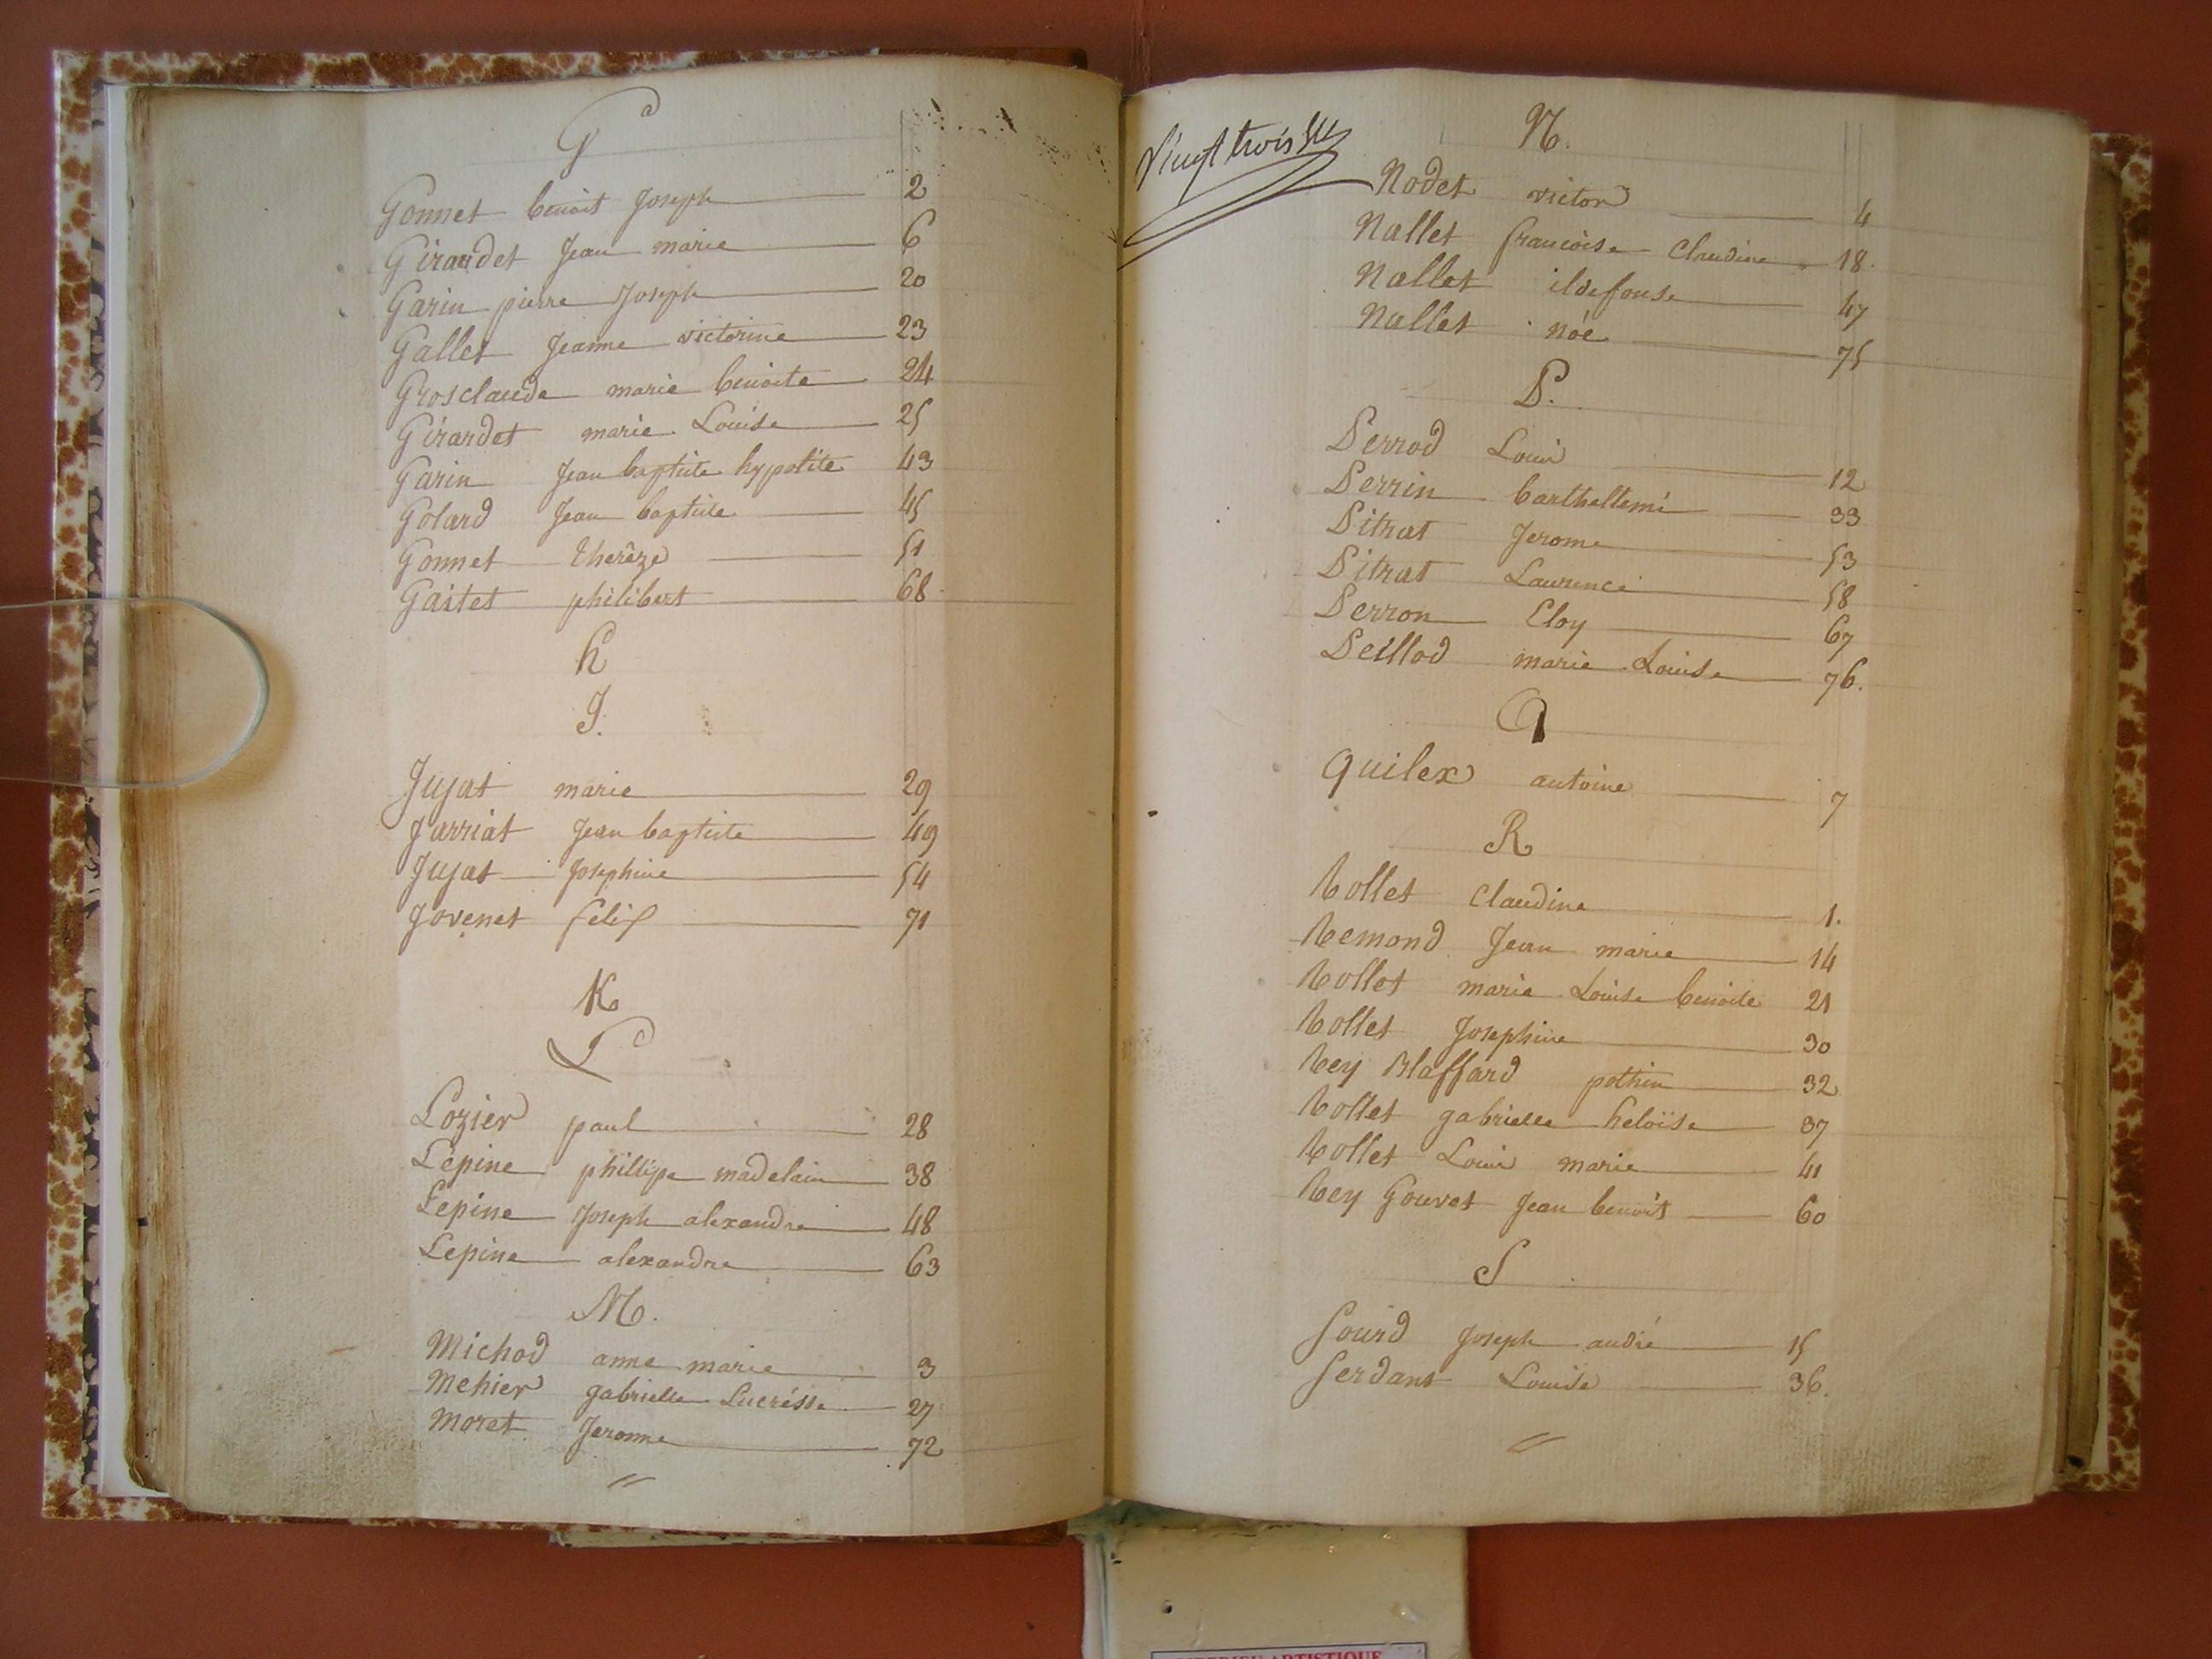 G
Gonnet benoit Joseph 2
Giraudet Jean marie 6
Garin pierre Joseph 20
Gallet Jeanne victorine 23
Grosclaude marie benoite 24
Girardet marie Louise 25
Garin Jean baptiste hypolite 43
Golard Jean baptiste 45
Gonnet Therèze 51
Gaitet philibert 68
h
J.
Jujat marie 29
Jarriat Jean baptiste 49
Jujat Josephine 54
Jovenet felix 71
K
L
Lozier paul 28
Lepine phillipe madelain 38
Lepine Joseph alexandre 48
Lepine alexandre 63
M.
Michod anne marie 3
Mehier gabrielle Lucrésse 27
Moret Jeromme 72
Vingt trois
N.
Nodet victor 4
Nallet francoise Claudine 18.
Nallet ildefonse 47
Nallet noé 75
P.
Perrod Louis 12
Perrin barthellemi 33
Pitrat Jerome 53
Pitrat Laurence 58
Perron Eloy 67
Peillod marie Louise 76.
Q
Quilex antoine 7
R
Rollet Claudine 1.
Remond Jean marie 14
Rollet marie Louise benoite 21
Rollet Josephine 30
Rey Blaffard pothin 32
Rollet gabrielle heloïse 37
Rollet Louis marie 41
Rey Gouvet Jean benoit 60
S
Sourd Joseph andré 15
Serdant Louise 36.
ARTISTIQUE